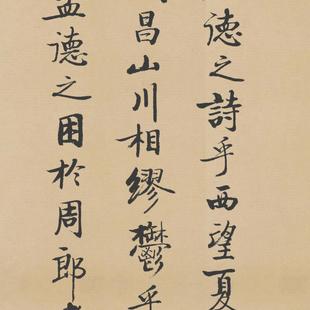 德之詩乎西望夏
昌山川相繆鬱乎
孟德之困於周郎